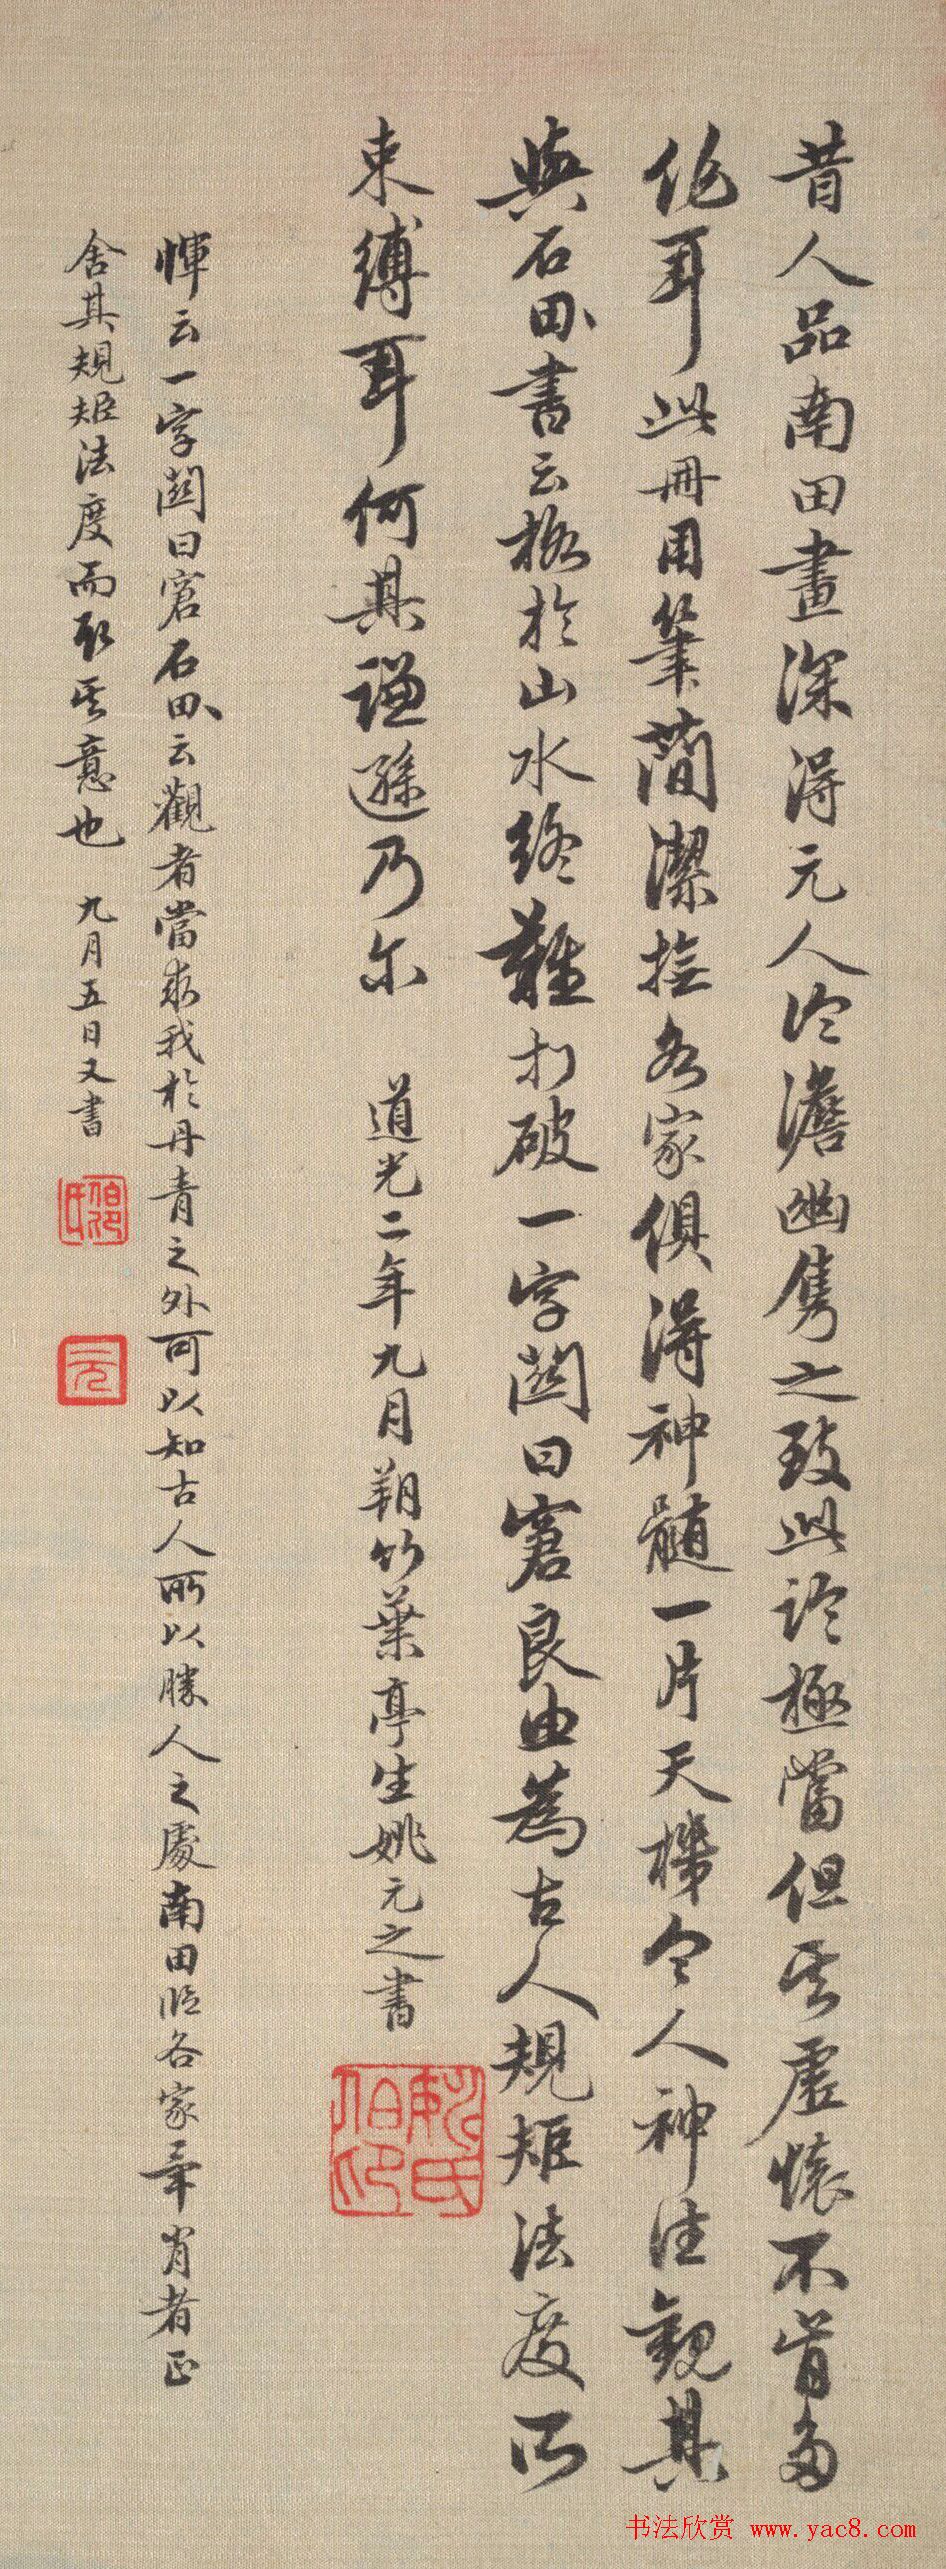 昔人品南田畫深得元人冷澹幽雋之致此論極當但其虛懷不肯多
作耳此冊用筆簡潔橅各家俱得神髓一片天機令人神往觀其
與石田書云格於山水終難打破一字關曰窘良由為古人規矩法度所
束縛耳何其謙遜乃尔 道光二年九月朔竹葉亭生姚元之書
惲云一字關曰窘石田云觀者當求我於丹青之外可以知古人所以勝人之處南田臨各家畢肖者正
舍其規矩法度而取其意也 九月五日又書
伯卬氏
元
姚氏伯卬
书法欣赏 www.yac8.com